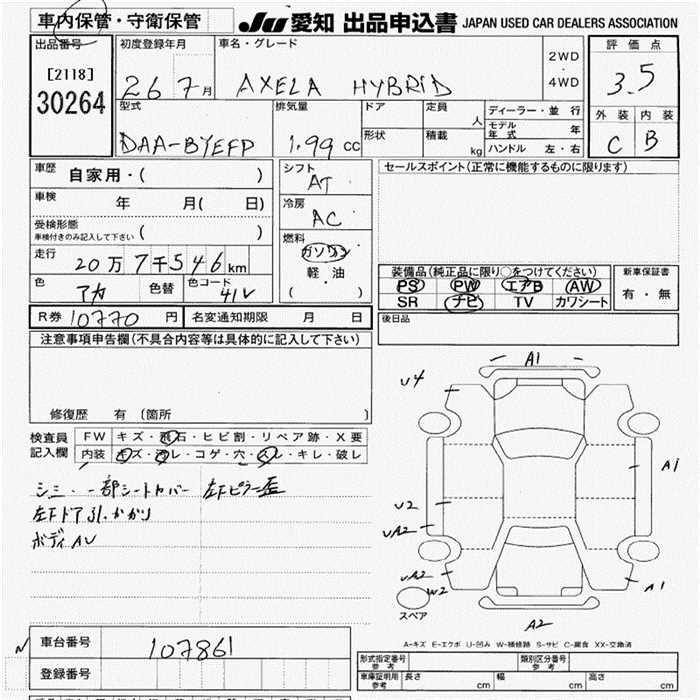 車内保管・守衛保管
JU 愛知 出品申込書 JAPAN USED CAR DEALERS ASSOCIATION
出品番号 初度登録年月 車名・グレード 評価点
[2118] 2WD
・
30264 26 7月 AXELA HYBRID 4WD 3.5
型式 排気量 ドア 定員 人 ディーラー・並行 外装 内装
DAA-BYEFP 1.99 cc 形状 積載 kg モデル年式 年 C B
ハンドル 左・右
車歴 自家用・( ) シフト AT セールスポイント(正常に機能するものに限ります)
車検 年 月( 日) 冷房 AC
受検形態
車検付きのみ記入して下さい ( ) 燃料 ガソリン
走行 20万7千546km 軽・油 装備品(純正品に限り○をつけてください) 新車保証書
色 アカ 色替 色コード 41V ( ) PS PW エアB AW 有・無
SR ナビ TV カワシート
R券 10770円 名変通知期限 月 日 後日品
注意事項申告欄(不具合内容等は具体的に記入して下さい)
修復歴 有 (箇所 )
検査員 FW キズ・飛石・ヒビ割・リペア跡・X要
記入欄 内装 キズ・汚レ・コゲ・穴・スレ・キレ・破レ
シミ・一部シートカバー 左Fピラー歪
左Fドア引っかかり
ボディAU
A1
U4
A1
U2
UA2
UA2
W2
A1
A2
スペア
A-キズ E-エクボ U-凹み W-補修跡 S-サビ C-腐食 XX-交換済
車台番号 107861
登録番号
形式指定番号 参考 類別区分番号 参考
車庫証明用 参考 長さ cm 幅 cm 高さ cm